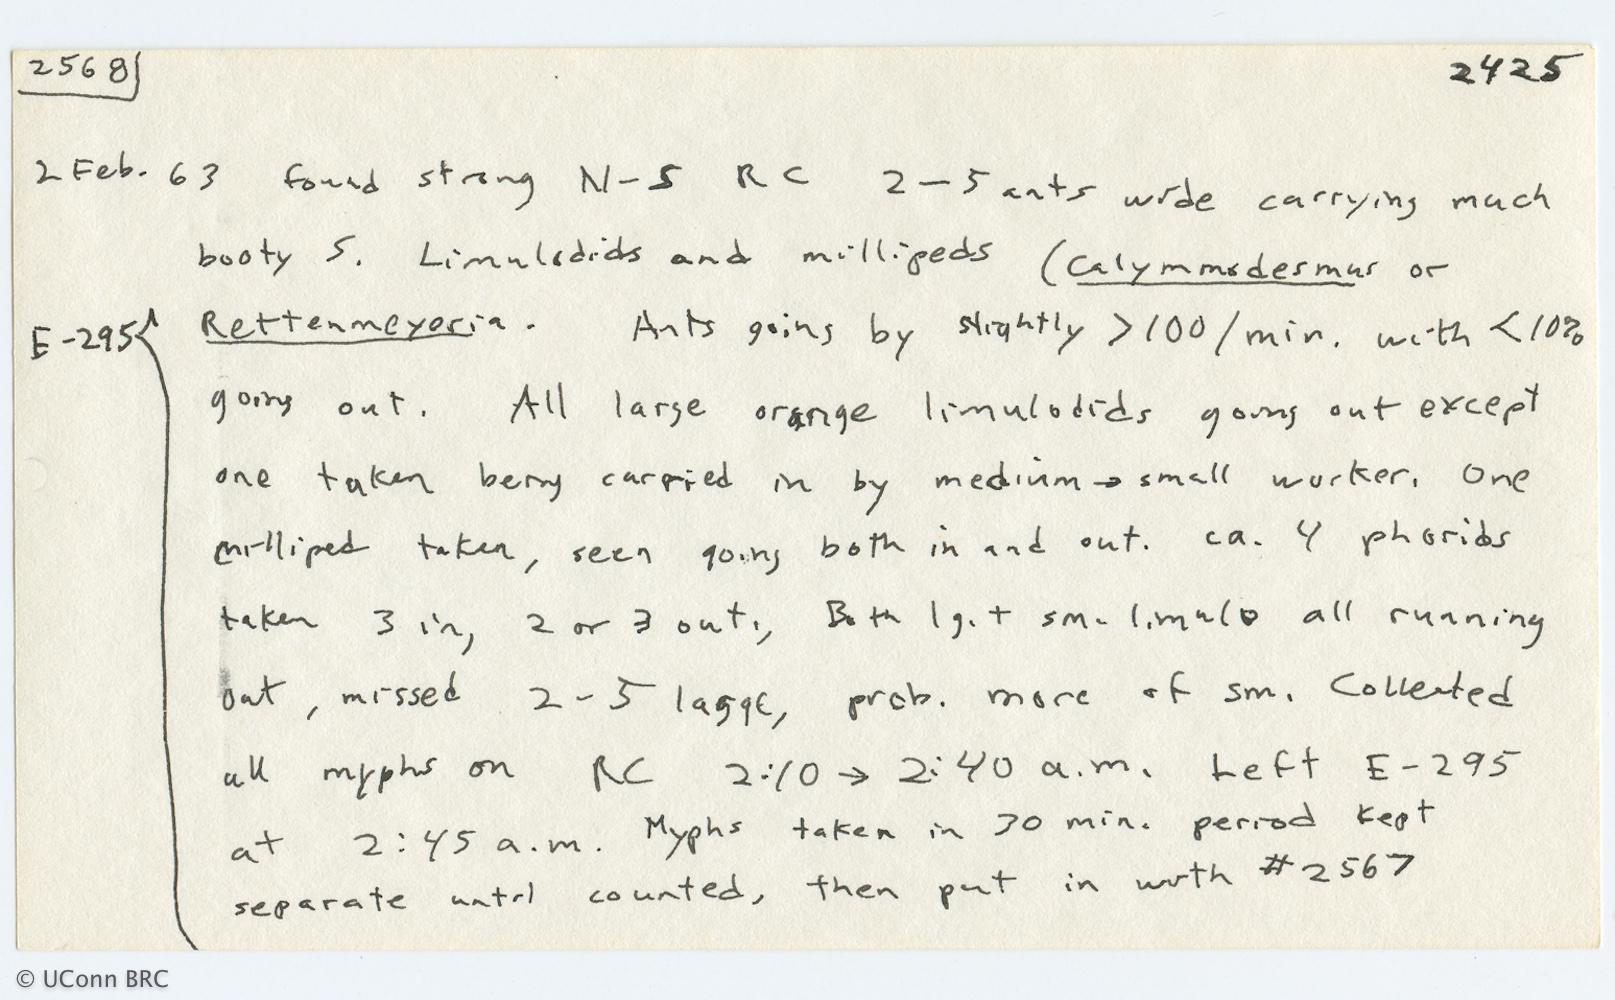 2568 2425
2 Feb. 63 found strong N-S RC 2-5 ants wide carrying much
booty S. Limulodids and millipeds (Calymmodesmus or
E-295 Rettenmeyeria. Ants going by slightly >100/min. with <10%
going out. All large orange limulodids going out except
one taken being carried in by medium → small worker. One
milliped taken, seen going both in and out. ca. 4 phorids
taken 3 in, 2 or 3 out., Both lg. + sm. limulo all running
out, missed 2-5 lagge, prob. more of sm. Collected
all myphs on RC 2:10 → 2:40 a.m. Left E-295
at 2:45 a.m. Myphs taken in 30 min. period kept
separate until counted, then put in with #2567
© UConn BRC